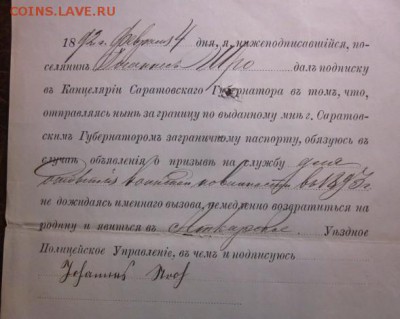 COINS.LAVE.RU
1892 г. Февраля 4 дня, я, нижеподписавшійся, по-
селянинъ далъ подписку
въ Канцеляріи Саратовскаго Губернатора въ томъ, что,
отправляясь нынѣ заграницу по выданному мнѣ г. Саратов-
скимъ Губернаторомъ заграничному паспорту, обязуюсь въ
случаѣ объявленія о призывѣ на службу для
отбытія воинской повинности въ 1893 г.
не дожидаясь именнаго вызова, немедленно возвратиться на
родину и явиться въ Аткарское Уѣздное
Полицейское Управленіе, въ чемъ и подписуюсь
Johannes